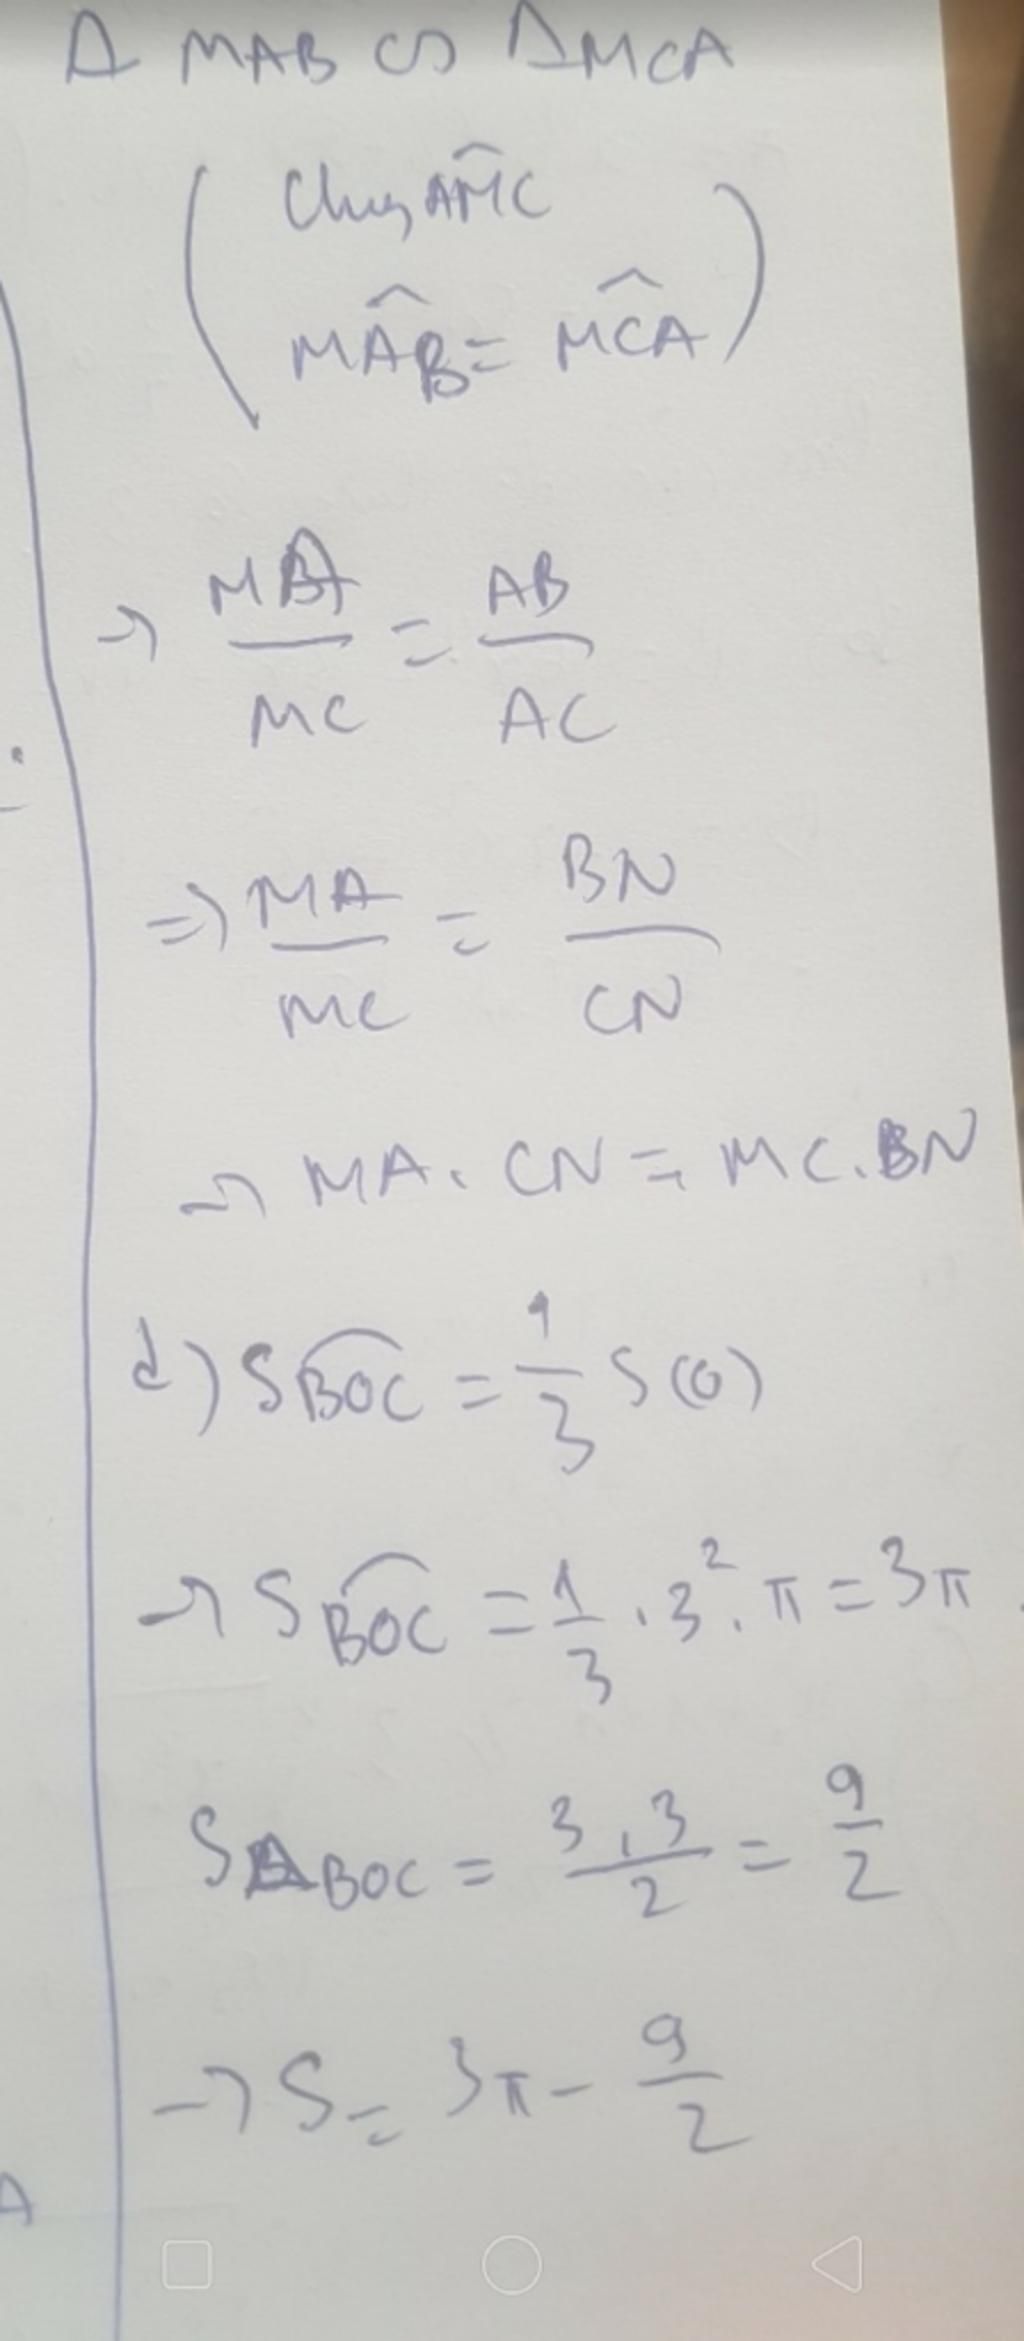 Δ MAB ∽ ΔMCA
( Chung \widehat{AMC}
\widehat{MAB} = \widehat{MCA} )
→ \frac{MA}{MC} = \frac{AB}{AC}
⇒ \frac{MA}{MC} = \frac{BN}{CN}
→ MA. CN = MC.BN
d) S \overset{\frown}{BOC} = \frac{1}{3} S(O)
→ S \overset{\frown}{BOC} = \frac{1}{3} . 3^2 . π = 3π
SΔBOC = \frac{3.3}{2} = \frac{9}{2}
→ S = 3π - \frac{9}{2}
A